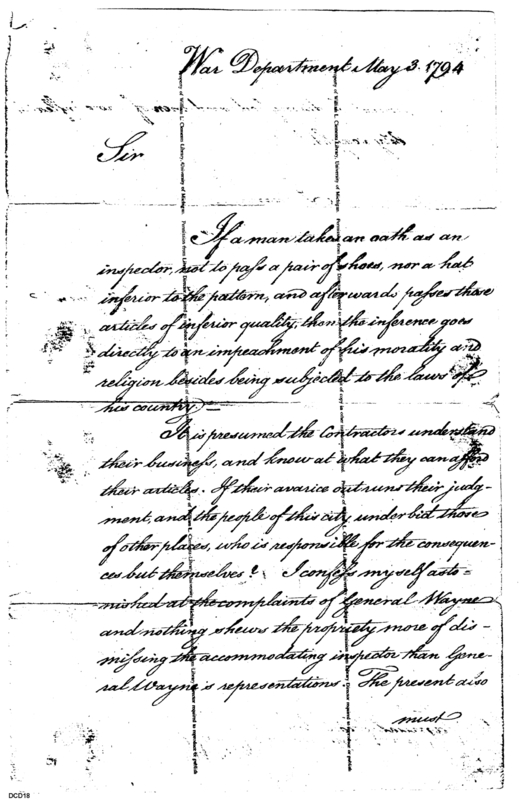 War Department May 3. 1794
Sir
If a man takes an oath as an
inspector, not to pass a pair of shoes, nor a hat
inferior to the pattern, and afterwards passes those
articles of inferior quality, then the inference goes
directly to an impeachment of his morality and
religion besides being subjected to the laws of
his country.—
It is presumed the Contractors understand
their business, and know at what they can afford
their articles. If their avarice out runs their judg-
ment, and the people of this city under bid those
of other places, who is responsible for the consequen-
ces but themselves? I confess myself asto-
nished at the complaints of General Wayne
and nothing shews the propriety more of dis-
missing the accommodating inspector than Gene-
ral Wayne's representations. The present also
must
DCD18